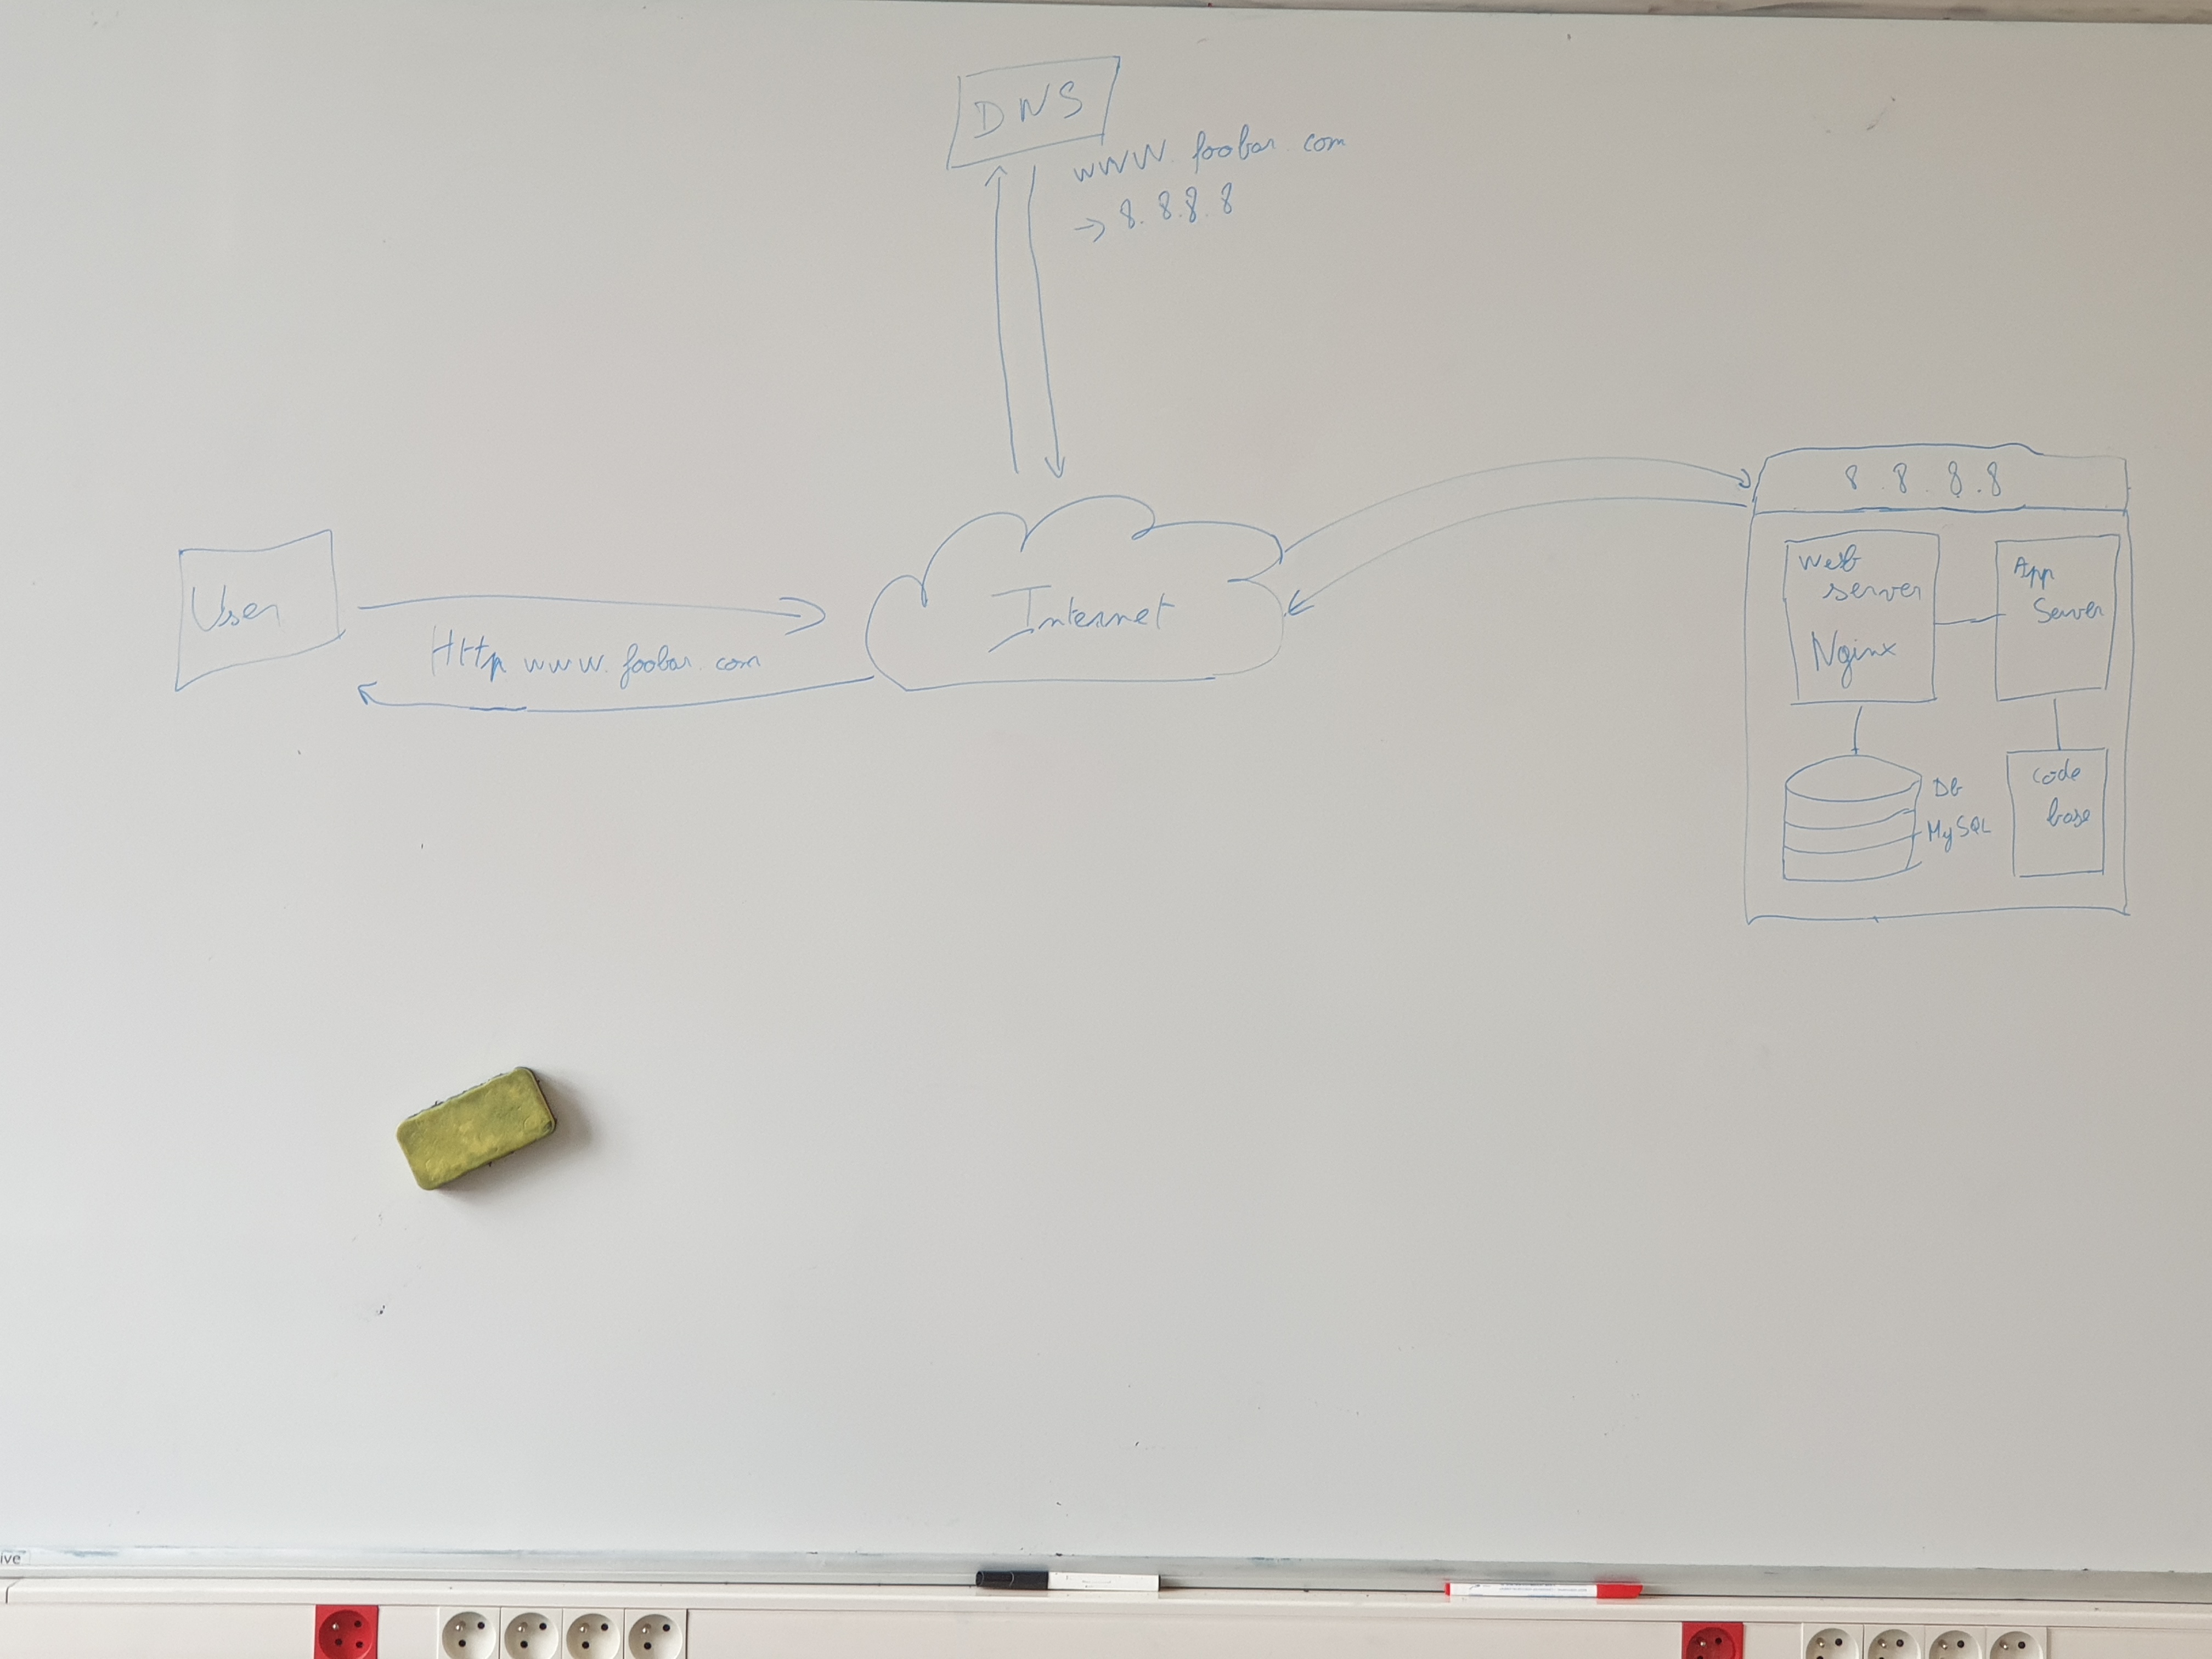 DNS
www.foobar.com
→ 8.8.8.8
User
Http www.foobar.com
Internet
8.8.8.8
Web
server
Nginx
App
Server
Db
MySQL
Code
base
ive